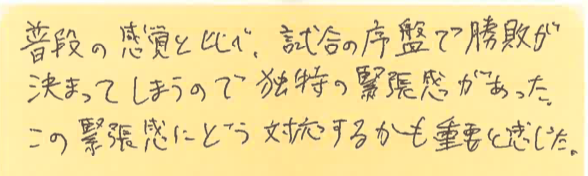 普段の感覚と比べ、試合の序盤で勝敗が
決まってしまうので独特の緊張感があった。
この緊張感にどう対応するかも重要と感じた。